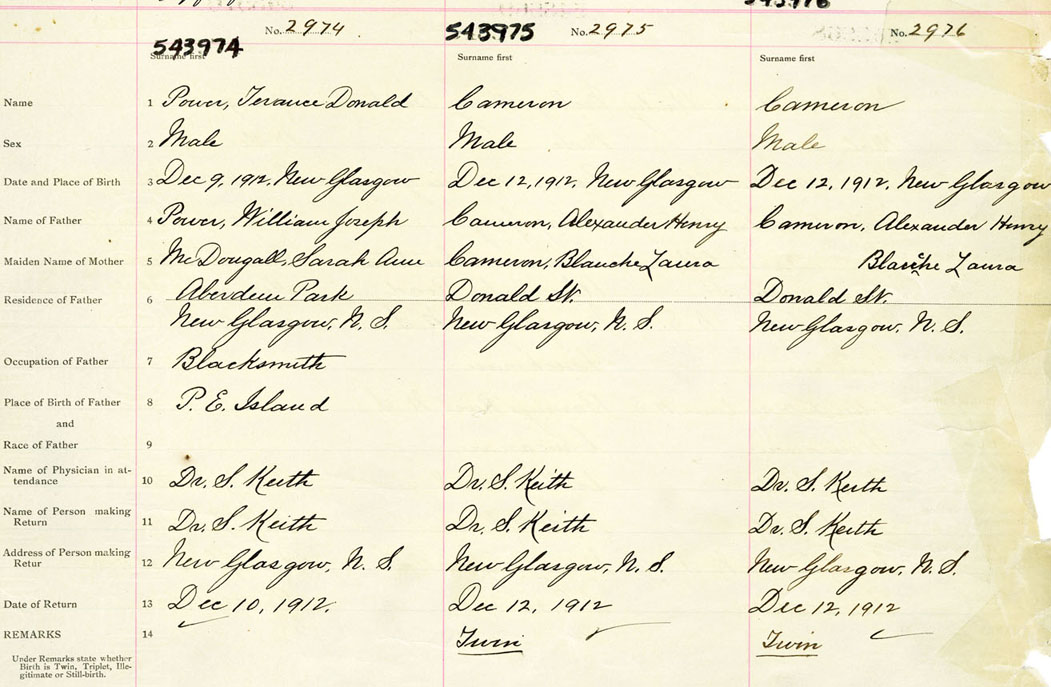 No. 2974 No. 2975 No. 2976
543974 543975 543976
Surname first Surname first Surname first
Name 1 Power, Terance Donald Cameron Cameron
Sex 2 Male Male Male
Date and Place of Birth 3 Dec 9, 1912, New Glasgow Dec 12, 1912, New Glasgow Dec 12, 1912, New Glasgow
Name of Father 4 Power, William Joseph Cameron, Alexander Henry Cameron, Alexander Henry
Maiden Name of Mother 5 McDougall, Sarah Ann Cameron, Blanche Laura Blanche Laura
Residence of Father 6 Aberdeen Park Donald St. Donald St.
New Glasgow, N. S. New Glasgow, N. S. New Glasgow, N. S.
Occupation of Father 7 Blacksmith
Place of Birth of Father 8 P. E. Island
and
Race of Father 9
Name of Physician in at-
tendance 10 Dr. S. Keith Dr. S. Keith Dr. S. Keith
Name of Person making
Return 11 Dr. S. Keith Dr. S. Keith Dr. S. Keith
Address of Person making
Retur 12 New Glasgow, N. S. New Glasgow, N. S. New Glasgow, N. S.
Date of Return 13 Dec 10, 1912. Dec 12, 1912 Dec 12, 1912
REMARKS 14 Twin Twin
Under Remarks state whether
Birth is Twin, Triplet, Ille-
gitimate or Still-birth.